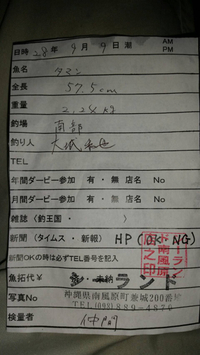 日時 28年 9月 9日 潮 AM PM
魚名 タマン
全長 57.5cm
重量 2.24kg
釣場 南部
釣り人
TEL
年間ダービー参加 有・無 店名 No
月間ダービー参加 有・無 店名 No
雑誌(釣王国・ )
新聞(タイムス・新報) HP(OK・NG)
新聞OKの時は必ずTEL番号を記入
魚拓代¥ ・未納 ランド
写真No 沖縄県南風原町兼城200番
TEL(098)889-4870
検量者 仲門